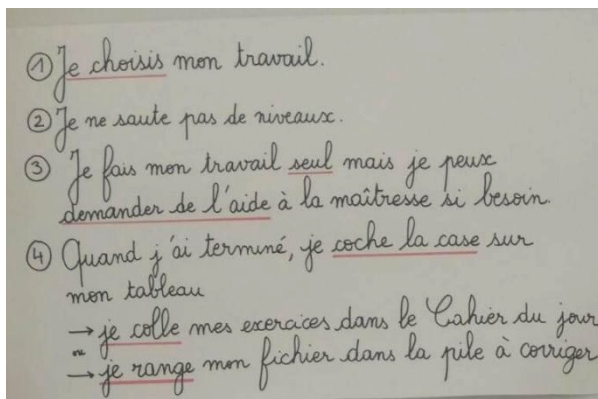 ① Je choisis mon travail.
② Je ne saute pas de niveaux.
③ Je fais mon travail seul mais je peux
demander de l'aide à la maîtresse si besoin.
④ Quand j'ai terminé, je coche la case sur
mon tableau
→ je colle mes exercices dans le Cahier du jour
ou
→ je range mon fichier dans la pile à corriger